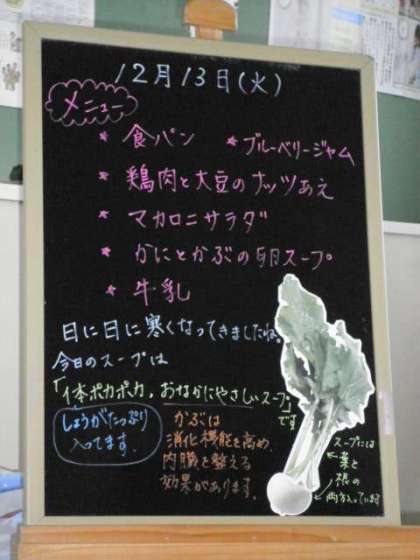 12月13日(火)
メニュー
* 食パン * ブルーベリージャム
* 鶏肉と大豆のナッツあえ
* マカロニサラダ
* かにとかぶの卵スープ
* 牛乳
日に日に寒くなってきましたね。
今日のスープは
「体ポカポカ。おなかにやさしいスープ。」
です
しょうがたっぷり
入ってます。
かぶは
消化機能を高め、
内臓を整える
効果があります。
スープには
葉と
根の
両方入っています